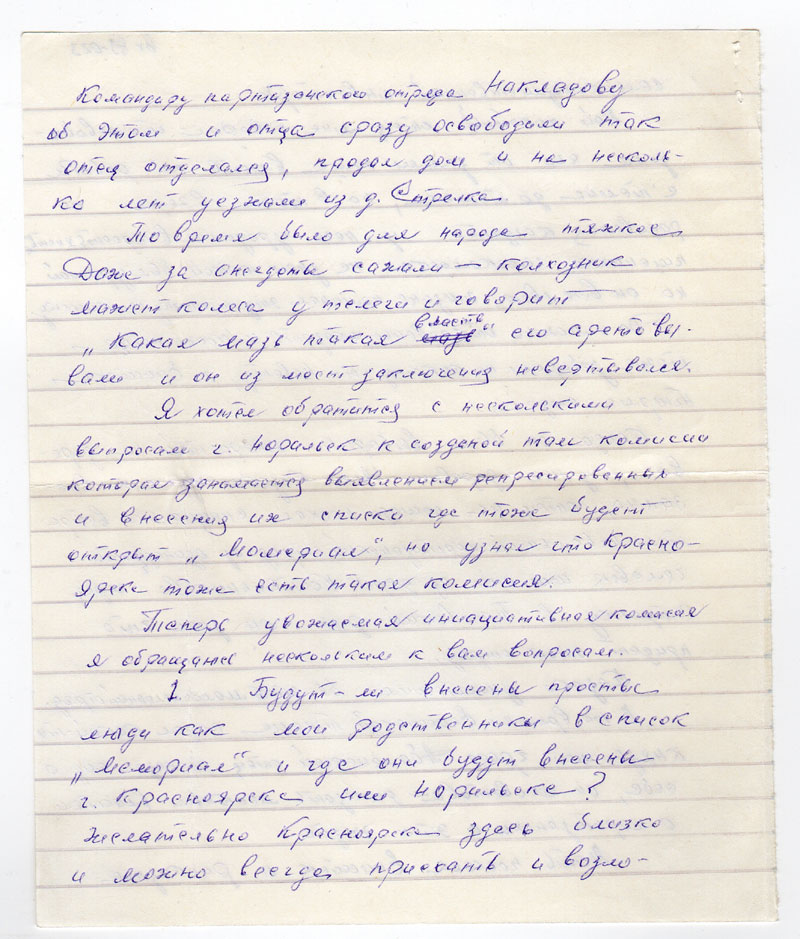 Командиру партизанского отряда Накладову
об этом и отца сразу освободили так
отец отделался, продал дом и на несколь-
ко лет уезжали из д. Стрелка
То время было для народа тяжкое
Даже за анегдоты сажали — колхозник
мажет колеса у телеги и говорит
„Какая мазь такая власть“ его арестовы-
вали и он из мест заключения невертывался.
Я хотел обратится с несколскими
выпросам г. Норильск к созданой там комисии
которая занимается выявлением репресированных
и внесения их списки где тоже будет
открыт „Момериал“, но узнал что Красно-
ярске тоже есть такая комисия.
Теперь уважаемая инициативная комисия
я обращаюсь несколским к вам вопросам.
1 Будут-ли внесены просты
люди как мои родственники в список
„Мемориал“ и где они будут внесены
г. Красноярске или Норильске?
желательно Красноярске здесь близко
и можно всегда приехать и возло-